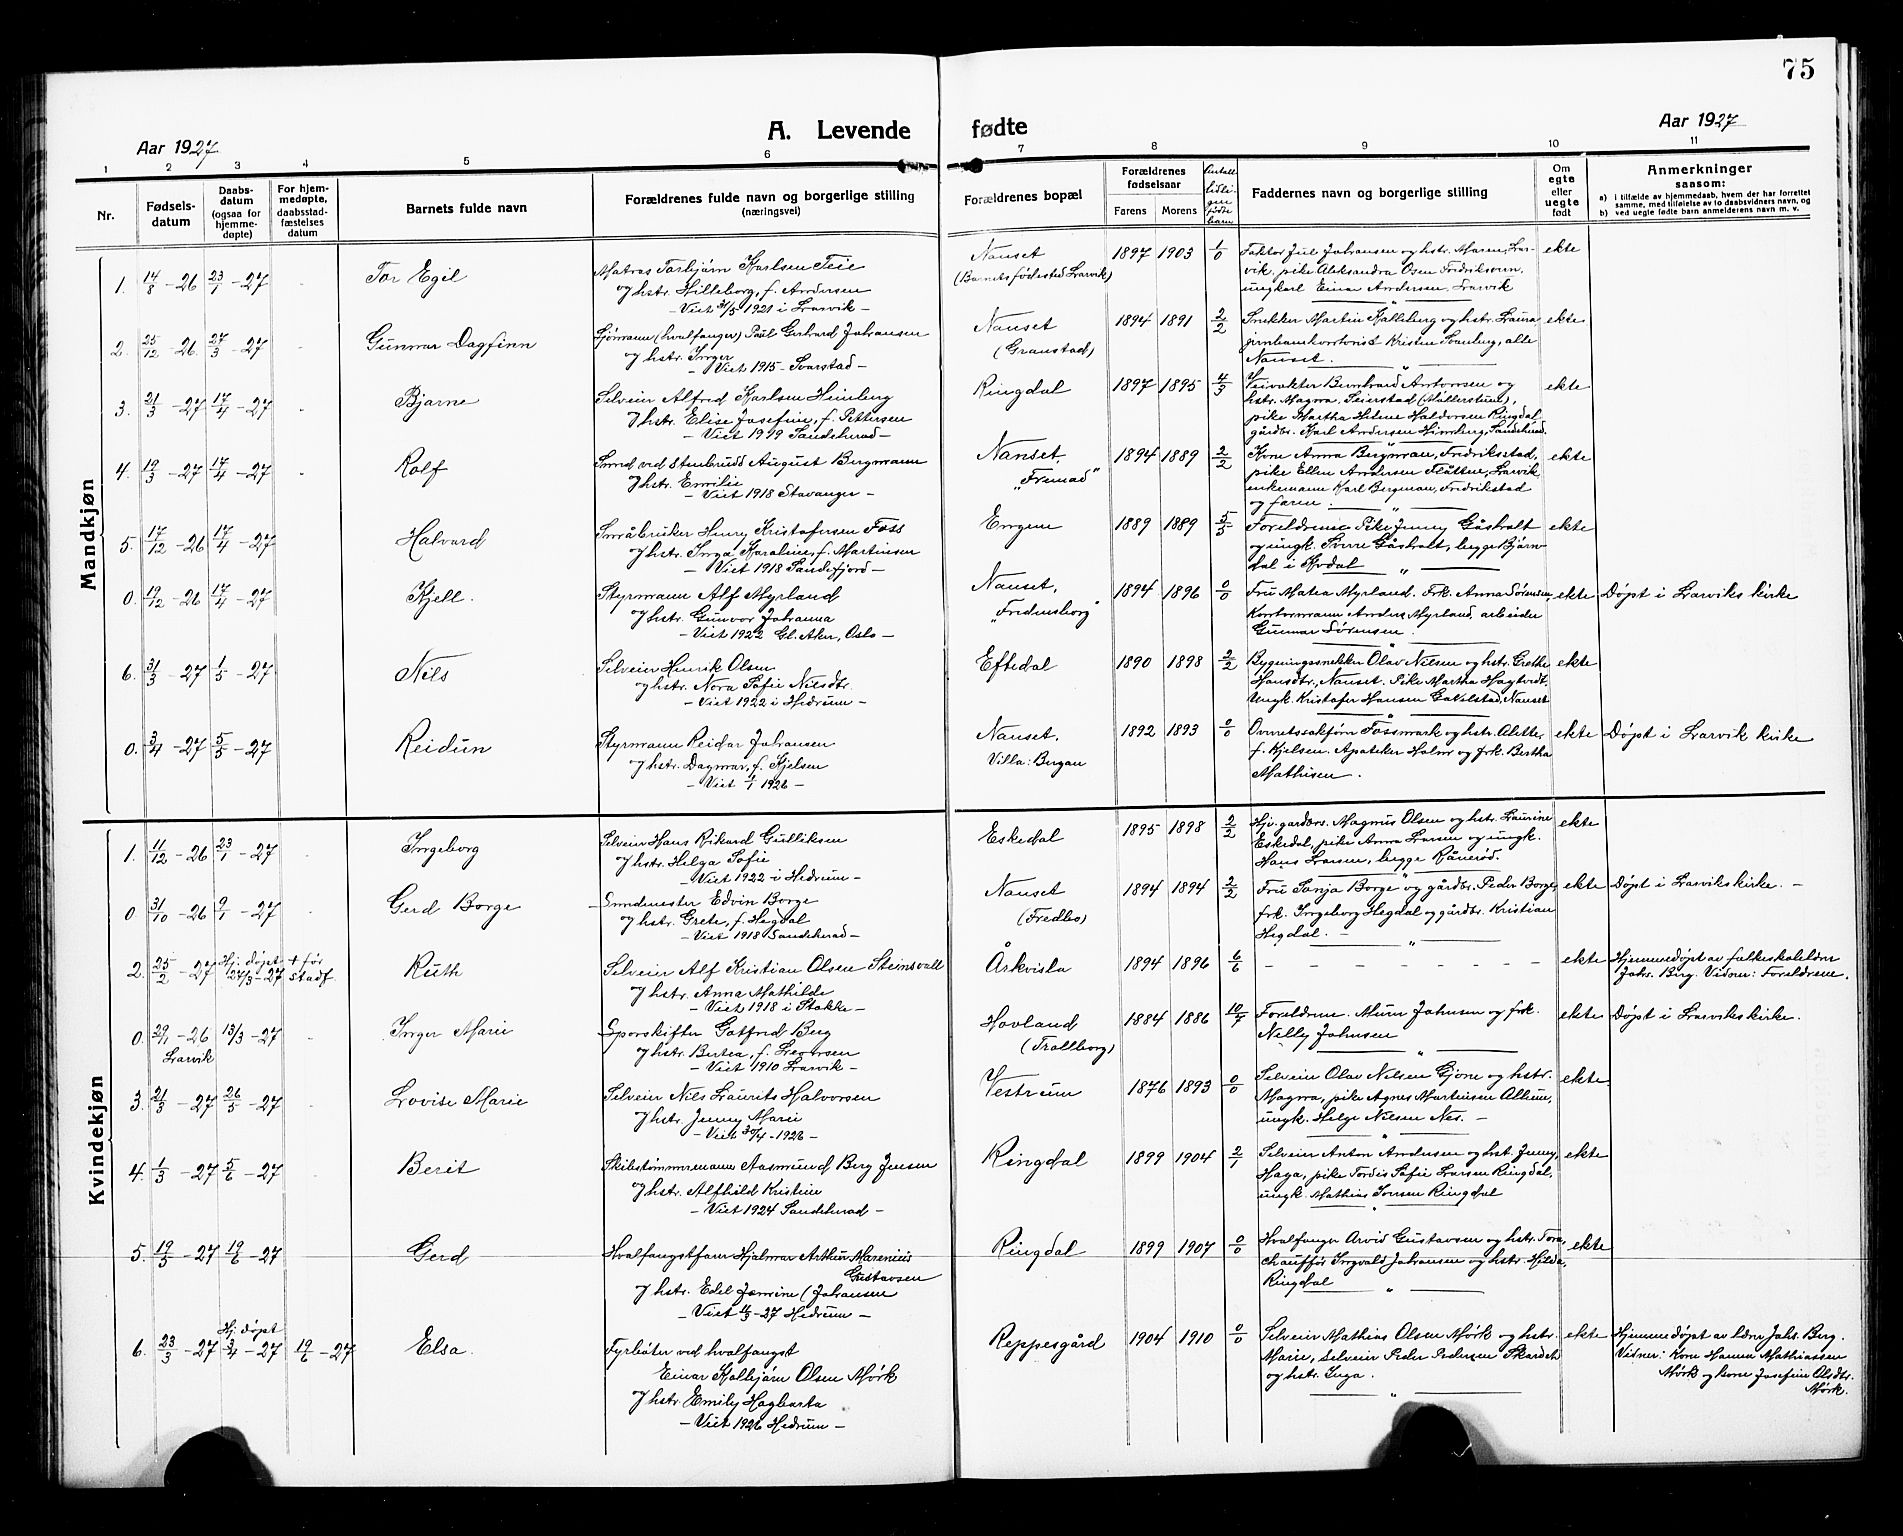 75
A. Levende fødte
Aar 1927
Aar 1927
1 2 3 4 5 6 7 8 9 10 11
Nr.
Fødsels-
datum
Daabs-
datum
(ogsaa for
hjemme-
døpte)
For hjem-
medøpte,
daabsstad-
fæstelses
datum
Barnets fulde navn
Forældrenes fulde navn og borgerlige stilling
(næringsvei)
Forældrenes bopæl
Forældrenes
fødselsaar
Farens Morens
Faddernes navn og borgerlige stilling
Om
egte
eller
uegte
født
Anmerkninger
saasom:
a) i tilfælde av hjemmedaab, hvem der har forrettet
samme, med tilføielse av to daabsvidners navn, og
b) ved uegte fødte barn anmelderens navn m. v.
Mandkjøn
1. 14/8-26 23/1-27 Tor Egil
Matros Torbjørn Karlsen Teie
og hstr. Hilleborg, f. Andersen
- Viet 31/5 1921 i Larvik -
Nanset
(Barnets fødested Larvik)
1897 1903 1/0
Faktor Juel Johansen og hstr. Maren, Lar-
vik, pike Aleksandra Osen Fredriksvern,
ungkarl Einar Andersen, Larvik
ekte
2. 25/12-26 27/3-27 Gunnar Dagfinn
Sjømann (hvalfanger) Paul Gerhard Johansen
og hstr. Inger
- Viet 1915 - Svarstad -
Nanset
(Granstad)
1894 1891 2/2
Snekker Martin Kalleberg og hstr. Laura
jernbanekontorist Kristen Svanberg, alle
Nanset.
ekte
3. 21/3-27 17/4-27 Bjarne
Selveier Alfred Karlsen Heimberg
og hstr. Elise Josefine, f. Pettersen
- Viet 1919 Sandeherad -
Ringdal
1897 1895 4/3
Veivokter Bernhard Antonsen og
hstr. Magna, Seierstad (Møllerstuen),
pike Martha Helene Haldorsen Ringdal
gårdbr. Karl Andersen Himberg, Sandeherad.
ekte
4. 19/3-27 17/4-27 Rolf
Smed ved stenbrudd August Bergmann
og hstr. Emilie
- Viet 1918 Stavanger -
Nanset,
"Fremad"
1894 1889 2/2
Kone Anna Bergman, Fredriksstad,
pike Ellen Andersen Flåtten, Larvik,
enkemann Karl Bergman, Fredrikstad
og faren.
ekte
5. 17/12-26 17/4-27 Halvard
Småbruker Henry Kristofersen Foss
og hstr. Inga Karoline, f. Martinsen
- Viet 1918 Sandefjord -
Emgem
1889 1889 5/5
Foreldrene. Pike Jenny Gåsholt
og ungk. Sverre Gåsholt, begge Bjørn-
dal i Kvdal
ekte
0. 19/12-26 17/4-27 Kjell.
Styrmann Alf Myrland
og hstr. Gunvor Johanna
- Viet 1922 Gl. Aker, Oslo -
Nanset,
"Fredensborg"
1894 1896 0/0
Fru Matea Myrland. Frk. Anna Sørensen,
Kontormann Anders Myrland, arbeider
Gunnar Sørensen.
ekte Døpt i Larviks kirke
6. 31/3-27 1/5-27 Nils
Selveier Henrik Olsen
og hstr. Nora Sofie Nilsdtr.
- Viet 1922 i Hedrum -
Eftedal
1890 1898 2/2
Bygningssnekker Olav Nilsen og hstr. Grethe
Hansdtr., Nanset. Pike Martha Hagtvedt,
Ungk. Kristofer Hansen Gavelstad, Nanset
ekte
0. 3/4-27 5/5-27 Reidun
Styrmann Reidar Johansen
og hstr. Dagmar, f. Kjelsen
- Viet 1/1 1926 -
Nanset.
Villa: Bergan
1892 1893 0/0
Overretssakfører Fossmark og hstr. Alette
f. Kjelsen. Apoteker Holm og frk. Bertha
Mathisen.
ekte Døpt i Larvik kirke
Kvindekjøn
1. 11/12-26 23/1-27 Ingeborg
Selveier Hans Rikard Gulliksen
og hstr. Helga Sofie
- Viet 1922 i Hedrum -
Eskedal
1895 1898 2/2
Hjv. gardbr. Magnus Olsen og hstr. Laurine
Eskedal, pike Anna Larsen og ungk.
Hans Larsen, begge Rånerød.
ekte
0 31/10-26 9/1-27 Gerd Borge
Smedmester Edvin Borge
og hstr. Grete, f. Hegdal
- Viet 1918 Sandeherad -
Nanset
(Fredbo)
1894 1894 2/2
Fru Sanja Borge og gårdbr. Peder Borge,
frk. Ingeborg Hegdal og gårdbr. Kristian
Hegdal. -
ekte Døpt i Larviks kirke. -
2. 25/2-27 Hj. døpt 27/3-27 + før Stadf. Ruth
Selveier Alf Kristian Olsen Steinsvall
og hstr. Anna Mathilde
- Viet 1918 i Stokke -
Årkvisla
1894 1896 6/6
- - - - - - -
ekte Hjemmedøpt av folkeskolelærer
Johs. Berg. Vidner: Foreldrene.
0. 29/1-26 13/3-27 Inger Marie
Larvik
Sporskifter Gotfred Berg
og hstr. Bertea, f. Leversen
- Viet 1910 Larvik -
Hovland
(Trollborg)
1884 1886 10/7
Foreldrene. Murer Johnsen og frk.
Nelly Johnsen
ekte Døpt i Larviks kirke.
3. 21/3-27 26/5-27 Lovise Marie
Selveier Nils Laurits Halvorsen
og hstr. Jenny Marie
- Viet 30/4-1926 -
Vestrum
1876 1893 0/0
Selveier Olav Nilsen Gjone og hstr.
Magna, pike Agnes Martinsen Allum,
ungk. Helge Nilsen Nes. -
ekte
4. 1/3-27 5/6-27 Berit
Skibstømmermann Aasmund Berg Jensen
og hstr. Alfhild Kristine
- Viet 1924 Sandeherad -
Ringdal
1899 1904 2/1
Selveier Anton Andersen og hst. Jenny,
Haga, pike Tordis Sofie Larsen Ringdal,
ungk. Mathias Jonsen Ringdal
ekte
5. 19/5-27 19/6-27 Gerd
Hvalfangstfarer Hjalmar Arthur Marenius
Gustavsen
og hstr. Edel Jannine (Johansen
- Viet 4/3-27 Hedrum -
Ringdal
1899 1907 0/0
Hvalfanger Arvid Gustavsen og hstr. Tora,
chauffør Ingvald Johansen og hstr. Hilda,
Ringdal
ekte
6. 23/3-27 Hj. døpt 3/4-27 19/6-27 Elsa.
Fyrbøter ved hvalfangst
Einar Kolbjørn Olsen Mørk
og hstr. Emily Hagbarta
- Viet 1926 Hedrum -
Reppesgård
1904 1910 0/0
Selveier Mathias Olsen Mørk og hstr.
Marie, Selveier Peder Pedersen Skardet
og hstr. Inga.
ekte Hjemmedøpt av lærer Johs. Berg.
Vidner: Kone Hanna Mathiassen
Mørk og kone Josefine Olsdtr.
Mørk.